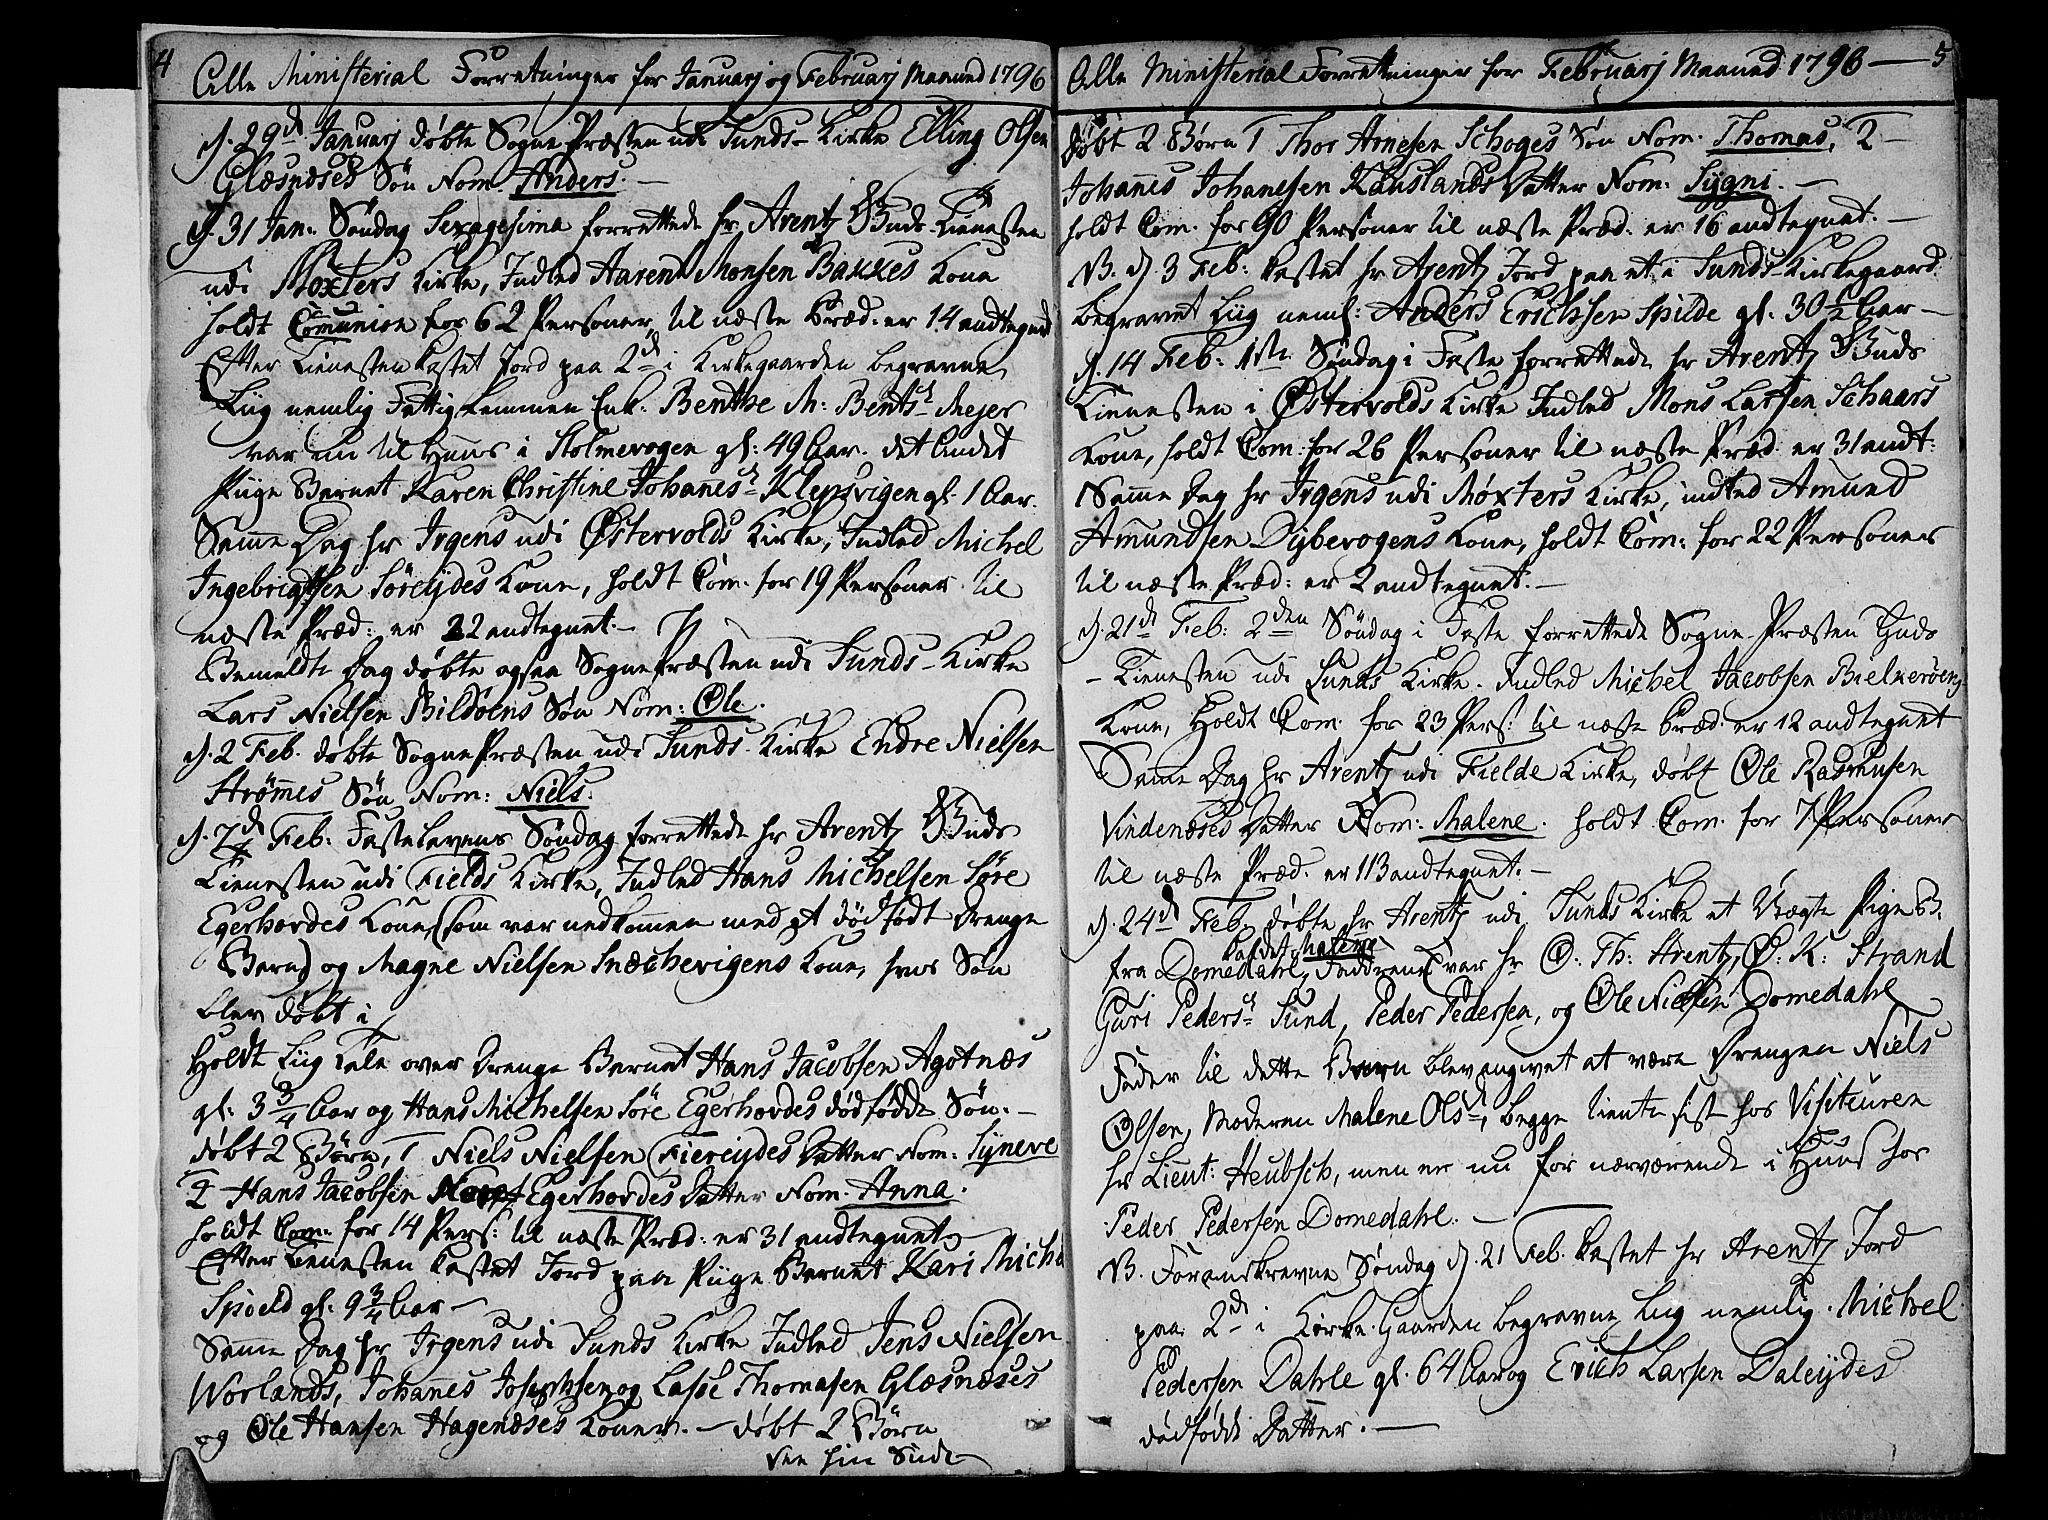 4
Alle Ministerial Forretninger for Januarj og Februarj Maaned 1796
d. 29de Januarj døbte Sogne Præsten udi Sunds-Kirke Elling Olsen
Glæsnæses Søn Nom. Anders. -
d. 31 Jan: Søndag Sexagesima forrettede hr Arentz Guds Tienesten
udi Møxters Kirke, Indled Aaren Monsen Bakkes Kone
holdt Comunion for 62 Personer, til næste Præd. er 14 andtegned
Efter Tienesten kastet Jord paa 2de i Kirkegaarden begravne
Liig nemlig Fattig Lemmen Enk. Benthe M: Bentsd. Mejer
var nu til Huus i Stolmevogen gl: 49 Aar. det andet
Piige Barnet Karen Christine Johannesd. Klepsvigen gl. 1 Aar.
Samme Dag hr Irgens udi Østervolds Kirke, Indled Michel
Ingebrigtsen Søreijdes Kone, holdt Com. for 19 Personer til
næste Præd: er 22 andtegnet. -
Bemeldte Dag døbte ogsaa Sogne Præsten udi Sunds-Kirke
Lars Nielsen Bildøens Søn Nom: Ole.
d. 2 Feb. døbte Sogne Præsten udi Sunds Kirke Endre Nielsen
Strømmes Søn Nom: Niels.
d. 7de Feb: Fastelavens Søndag forrettede hr Arentz Guds
Tienesten udi Fields Kirke, Indled Hans Michelsen Søre
Egerhovdes Kone, (som var nedkommen med et dødfødt Drenge
Barn) og Magne Nielsen Snæchevigens Kone, hvis Søn
blev døbt i
Holdt Liig Tale over Drenge Barnet Hans Jacobsen Agotnæs
gl: 3 3/4 Aar og Hans Michelsen Søre Egerhovdes dødfødde Søn. -
døbt 2 Børn, 1 Niels Nielsen Fiereijdes Datter Nom: Syneve
2 Hans Jacobsen Egerhovdes Datter Nom. Anna.
holdt Com: for 14 Pers: til næste Præd: er 31 andtegnet
Efter Tienesten kastet Jord paa Piige Barnet Kari Micha
Spioeld gl. 9 3/4 Aar -
Samme Dag hr Irgens udi Sunds Kirke Indled Jens Nielsen
Worlands, Johannes Josephsen og Lasse Thomasen Glæsnæses
og Ole Hansen Hagenæses Koner. - døbt 2 Børn
See hin Side
Alle Ministerial Forrettninger for Februarj Maaned 1796 - 5
døbt 2 Børn 1 Thor Arnesen Schoges Søn Nom. Thomas, 2 -
Johannes Johanesen Kauslands Datter Nom: Sygni. -
holdt Com. for 90 Personer til næste Præd. er 16 andtegnet. -
NB. d. 3 Feb: kastet hr Arentz Jord paa et i Sunds Kirkegaard
begravet Liig neml: Anders Erichsen Spilde gl. 30 1/2 Aar -
d. 14 Feb: 1ste Søndag i Faste forrettede hr Arentz Guds
Tienesten i Østervolds Kirke Indled Mons Larsen Schaars
Kone, holdt Com. for 26 Personer til næste Præd. er 31 andt:
Samme Dag hr Irgens udi Møxters Kirke, indled Amund
Amundsen Dybevogens Kone, holdt Com: for 22 Personer
til næste Præd: er 2 andtegnet. -
d. 21de Feb: 2den Søndag i Faste forrettede Sogne-Præsten Guds
-Tienesten udi Sunds Kirke. Indled Michel Jacobsen Bielkerøens
Kone, Holdt Com. for 23 Pers: til næste Præd: er 12 andtegnet
Samme Dag hr Arentz udi Fielde Kirke, døbt Ole Rasmusen
Vindenæses Datter Nom: Malene. holdt Com. for 7 Personer
til næste Præd. er 113 andtegnet. -
d. 24de Feb. døbte hr Arentz udi Sunds Kirke et Uægte Pige B.
kaldet Malene
fra Domedahl, Faddrene var hr O: Th: Arentz, O. K: Strand
Guri Pedersd. Sund, Peder Pedersen, og Ole Nielsen Domedahl
Fader til dette Barn blev angivet at være Drengen Niels
Olsen, Moderen Malene Olsd., begge tiente sist hos Visiteuren
hr Lieut: Heubsch, men er nu for nærværende i Huus hos
Peder Pedersen Domedahl. -
NB. Foranskrevne Søndag d. 21 Feb. kastet hr Arentz Jord
paa 2de i Kirke-Gaarden begravne Liig nemlig. Michel
Pedersen Dahle gl. 64 Aar og Erich Larsen Daleijdes
dødfødde Datter. -